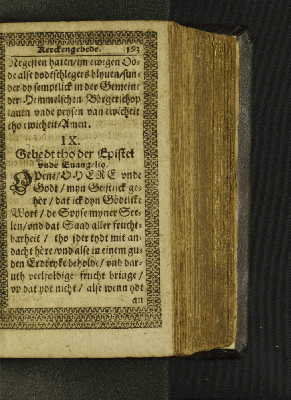 Kerckengebede. 193
de alse dodtschlegers blyuen/sun-
der dy semptlick in der Gemeine
der Hemmelschen Börgerschop
lauen vnde prysen van ewicheit
tho ewicheit/Amen.
IX.
Gebedt tho der Epistel
vnde Euangelio.
HERE vnde
Godt/myn
dat ick dyn Gödtlike
Wort/de Spyse myner See-
len/vnd dat Saad aller frucht-
barheit/tho jder tydt mit an-
dacht höre/vnd alse in einem gu-
den Erdtryke beholde/vnd dar-
uth veelvoldige frucht bringe/
vp dat ydt nicht/alse wenn ydt
an